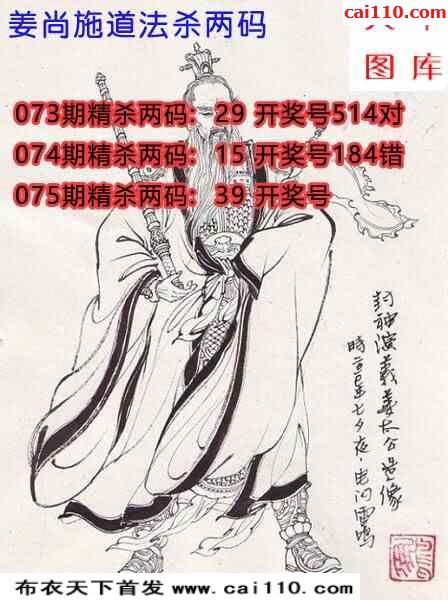 cai110.com
姜尚施道法杀两码
图库
073期精杀两码：29 开奖号514对
074期精杀两码：15 开奖号184错
075期精杀两码：39 开奖号
封神演义姜太公造像
布衣天下首发 www.cai110.com